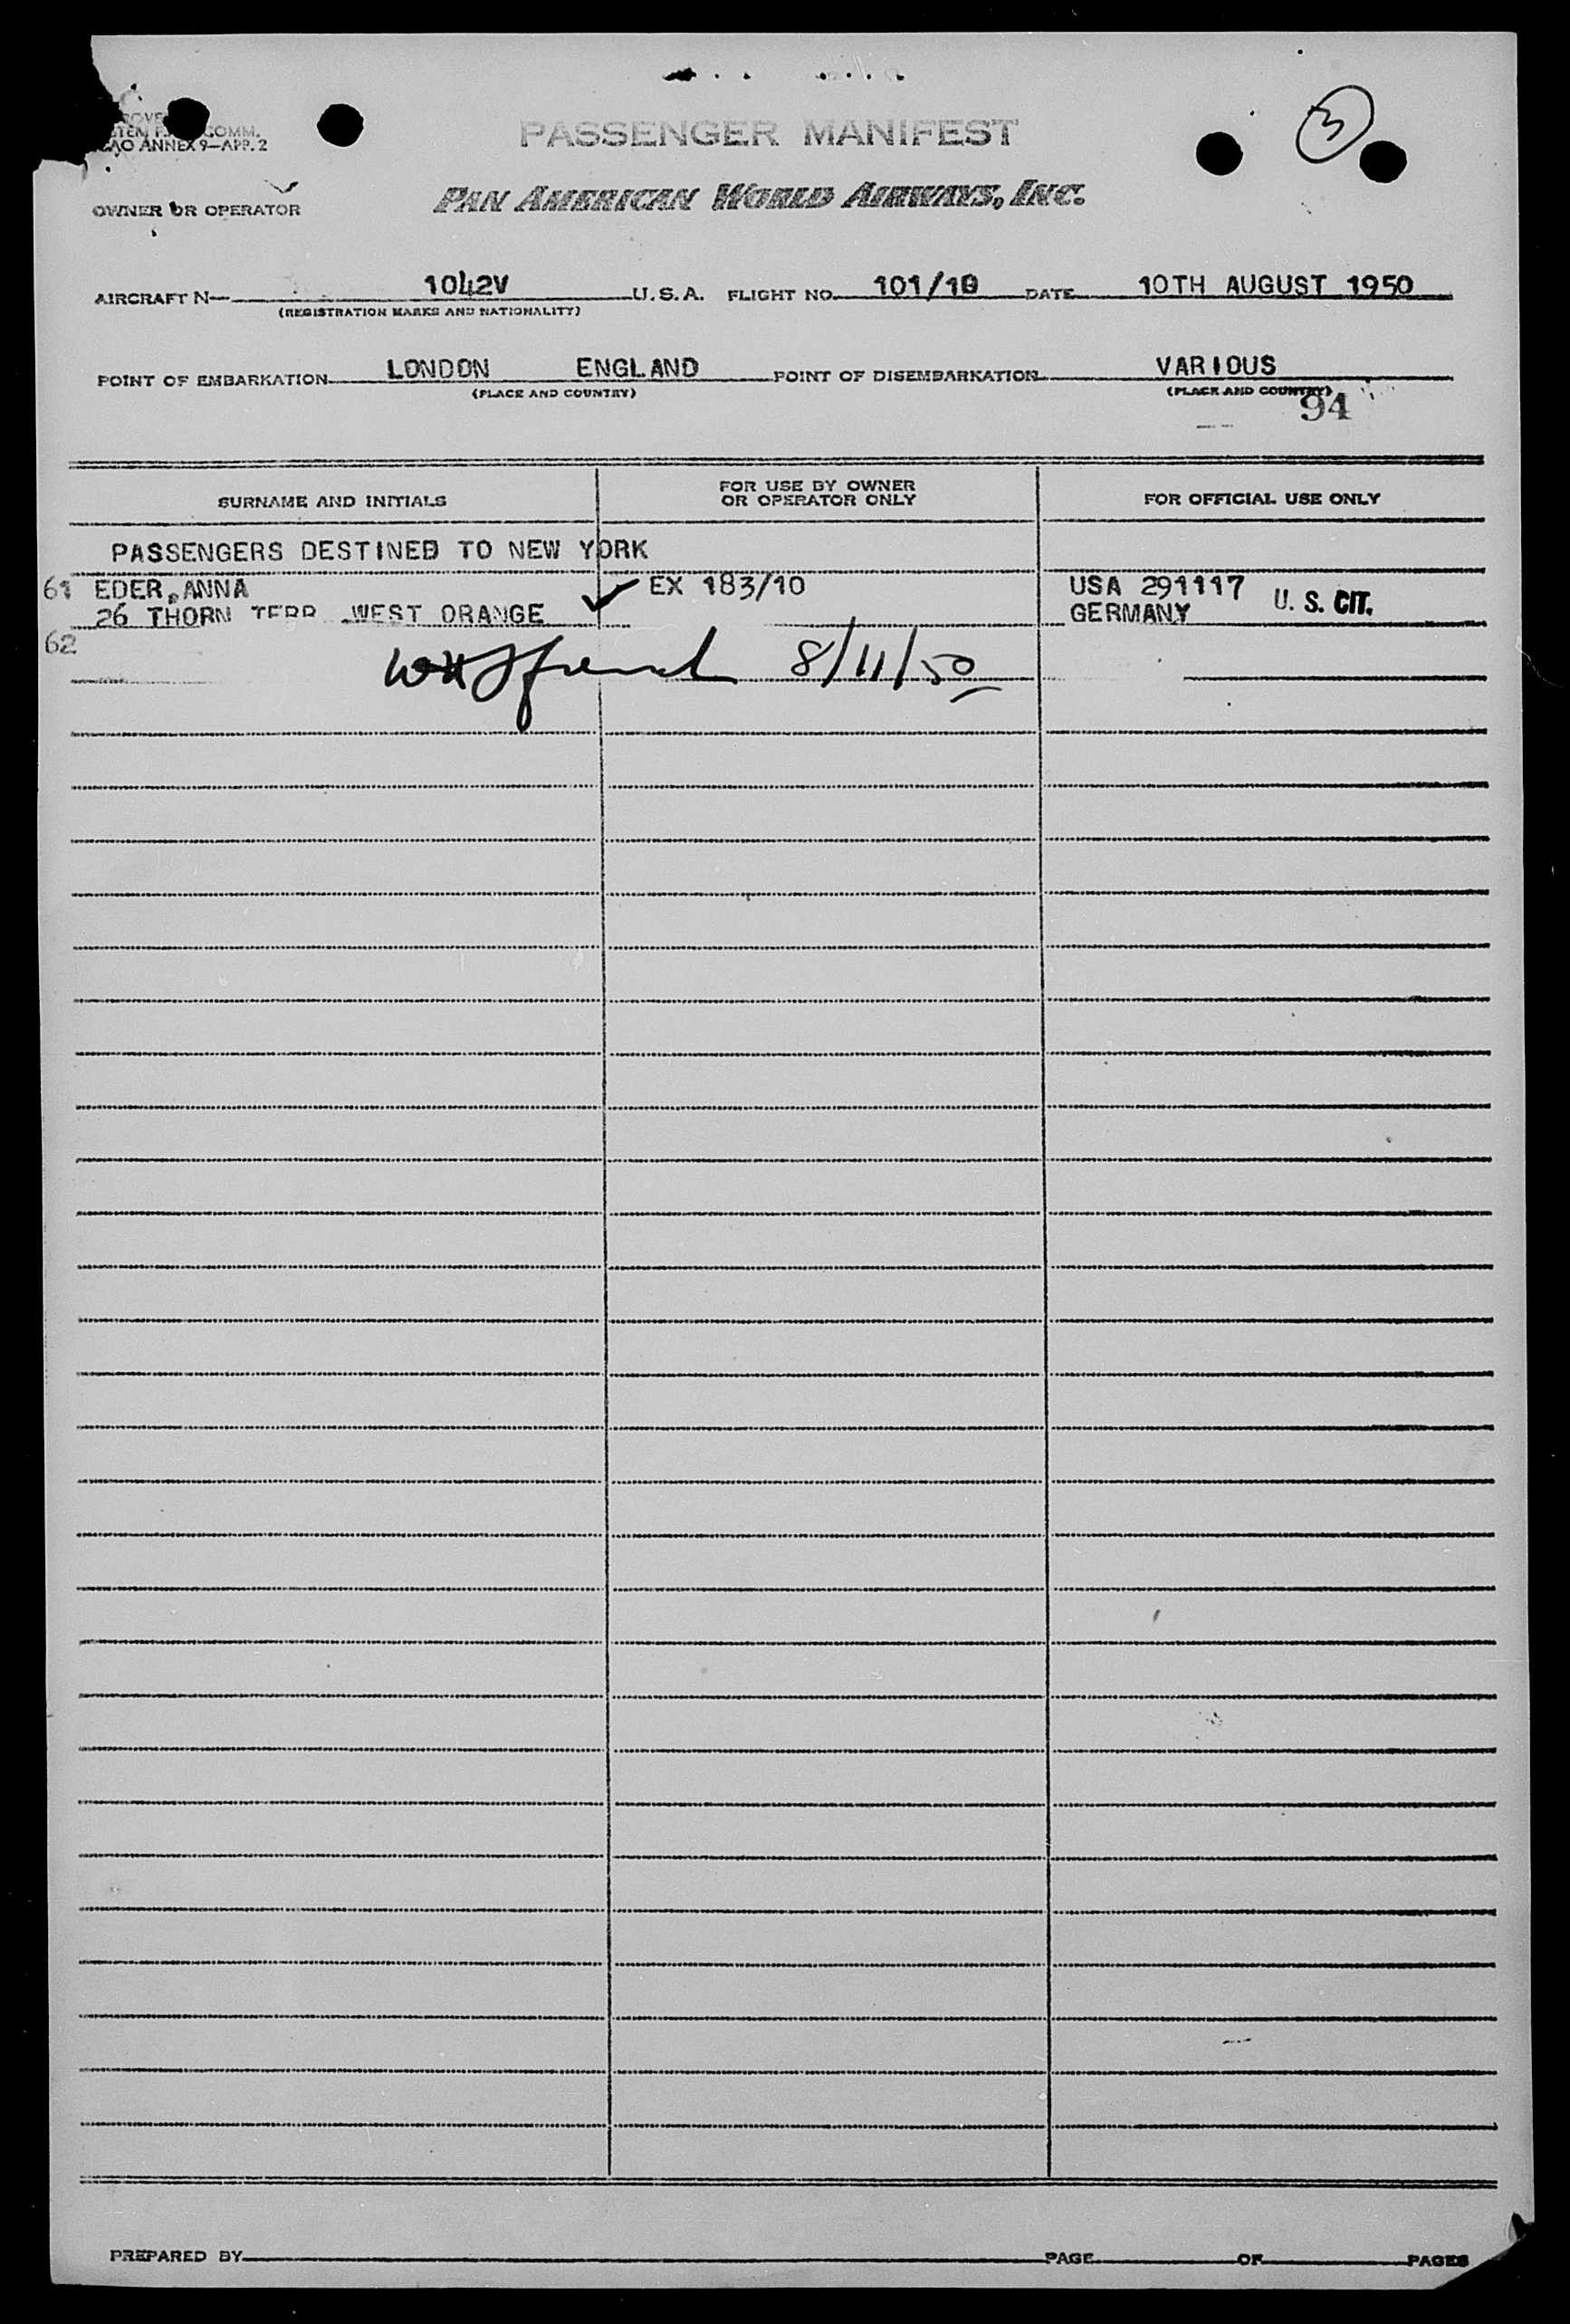 COMM.
ANNEX 9—APP. 2
3
PASSENGER MANIFEST
OWNER OR OPERATOR
PAN AMERICAN WORLD AIRWAYS, INC.
AIRCRAFT N— 1042V U.S.A. FLIGHT NO. 101/10 DATE 10TH AUGUST 1950
(REGISTRATION MARKS AND NATIONALITY)
POINT OF EMBARKATION LONDON ENGLAND POINT OF DISEMBARKATION VARIOUS
(PLACE AND COUNTRY) (PLACE AND COUNTRY)
94
SURNAME AND INITIALS FOR USE BY OWNER OR OPERATOR ONLY FOR OFFICIAL USE ONLY
PASSENGERS DESTINED TO NEW YORK
61 EDER, ANNA EX 183/10 USA 291117 U. S. CIT.
26 THORN TERR WEST ORANGE GERMANY
62
8/11/50
PREPARED BY PAGE OF PAGES